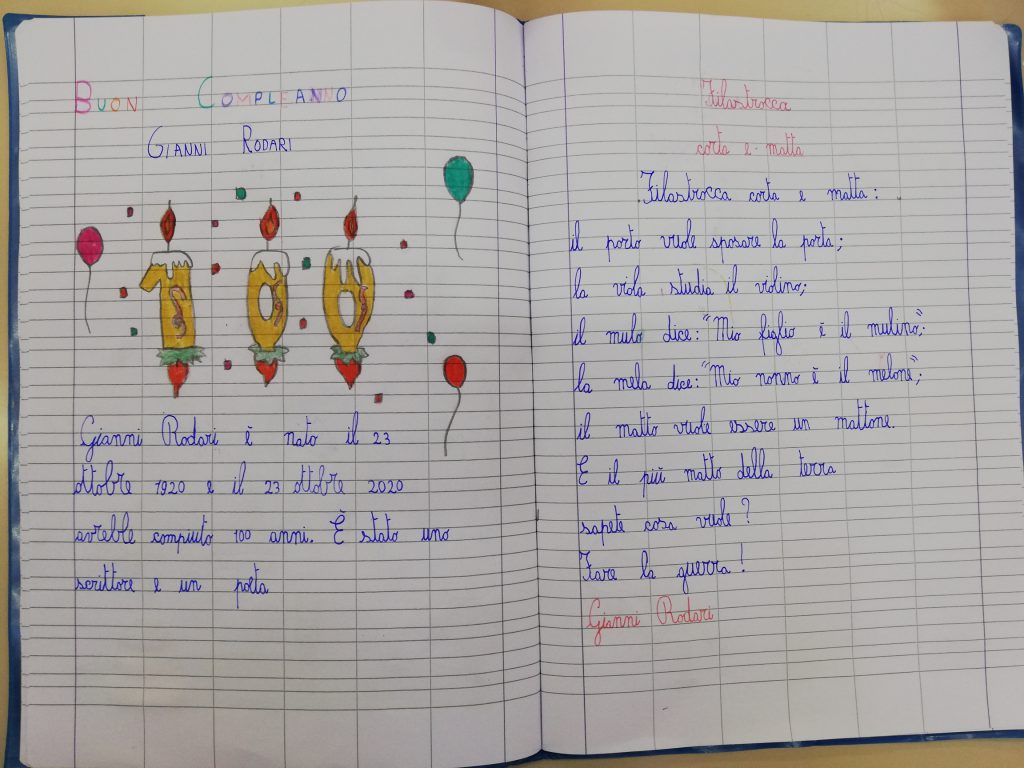 BUON COMPLEANNO
GIANNI RODARI
100
Gianni Rodari è nato il 23
ottobre 1920 e il 23 ottobre 2020
avrebbe compiuto 100 anni. È stato uno
scrittore e un poeta
Filastrocca
corta e matta
Filastrocca corta e matta:
il porto vuole sposare la porta;
la viola studia il violino;
il mulo dice: "Mio figlio è il mulino";
la mela dice: "Mio nonno è il melone";
il matto vuole essere un mattone.
E il più matto della terra
sapete cosa vuole?
Fare la guerra!
Gianni Rodari